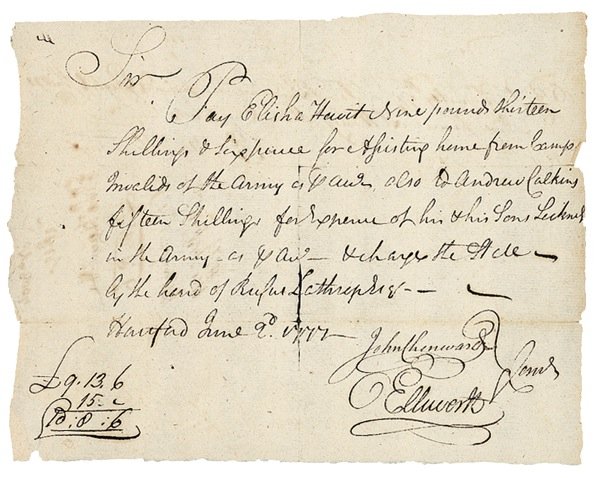 Sir
Pay Elisha Hewit Nine pounds thirteen
Shillings & Sixpence for Assisting home from Camp
Invalids of the Army as ⅌ acct also to Andrew Calkins
fifteen Shillings for Expence of his & his Sons Sickness
in the Army - as ⅌ acct - & charge the State
by the hand of Rufus Lathrop Esqr -
Hartford June 2d. 1777 -
John Chenward
O Ellsworth
Comtt
£9.13.6
15. -
10:8:6